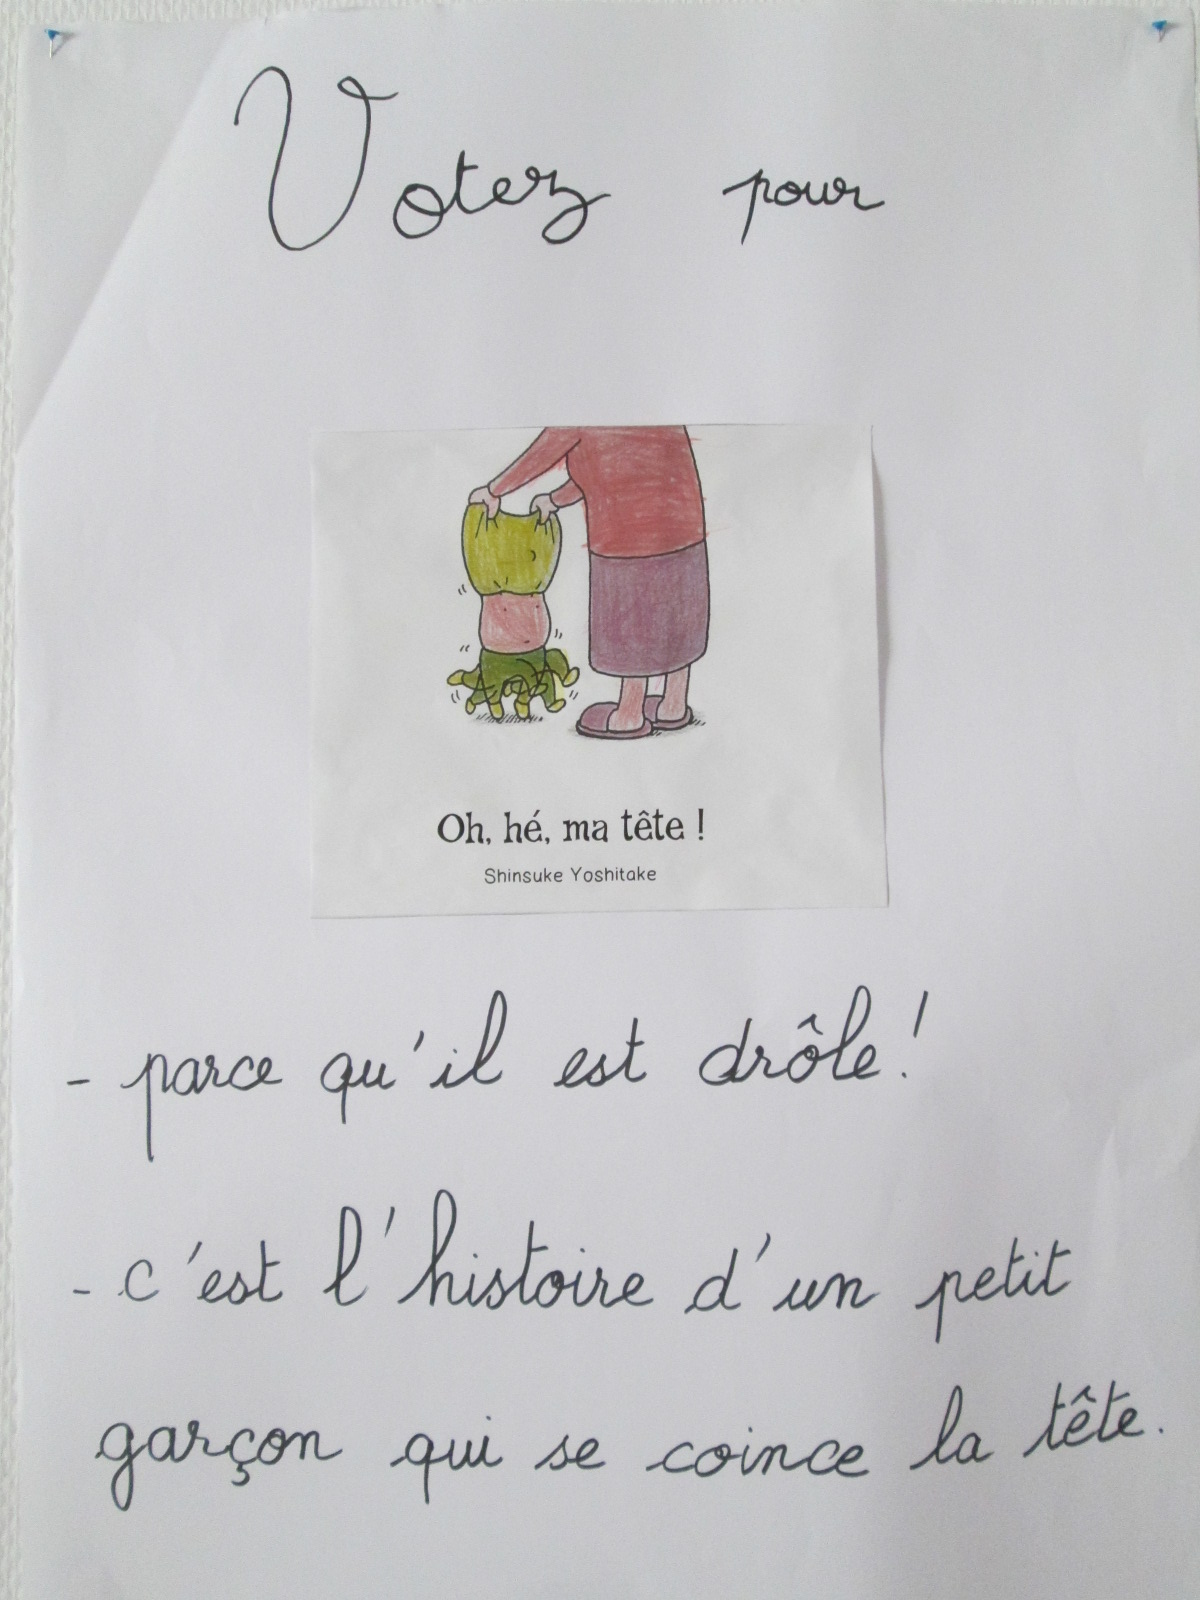 Votez pour
Oh, hé, ma tête !
Shinsuke Yoshitake
- parce qu'il est drôle!
- c'est l'histoire d'un petit
garçon qui se coince la tête.